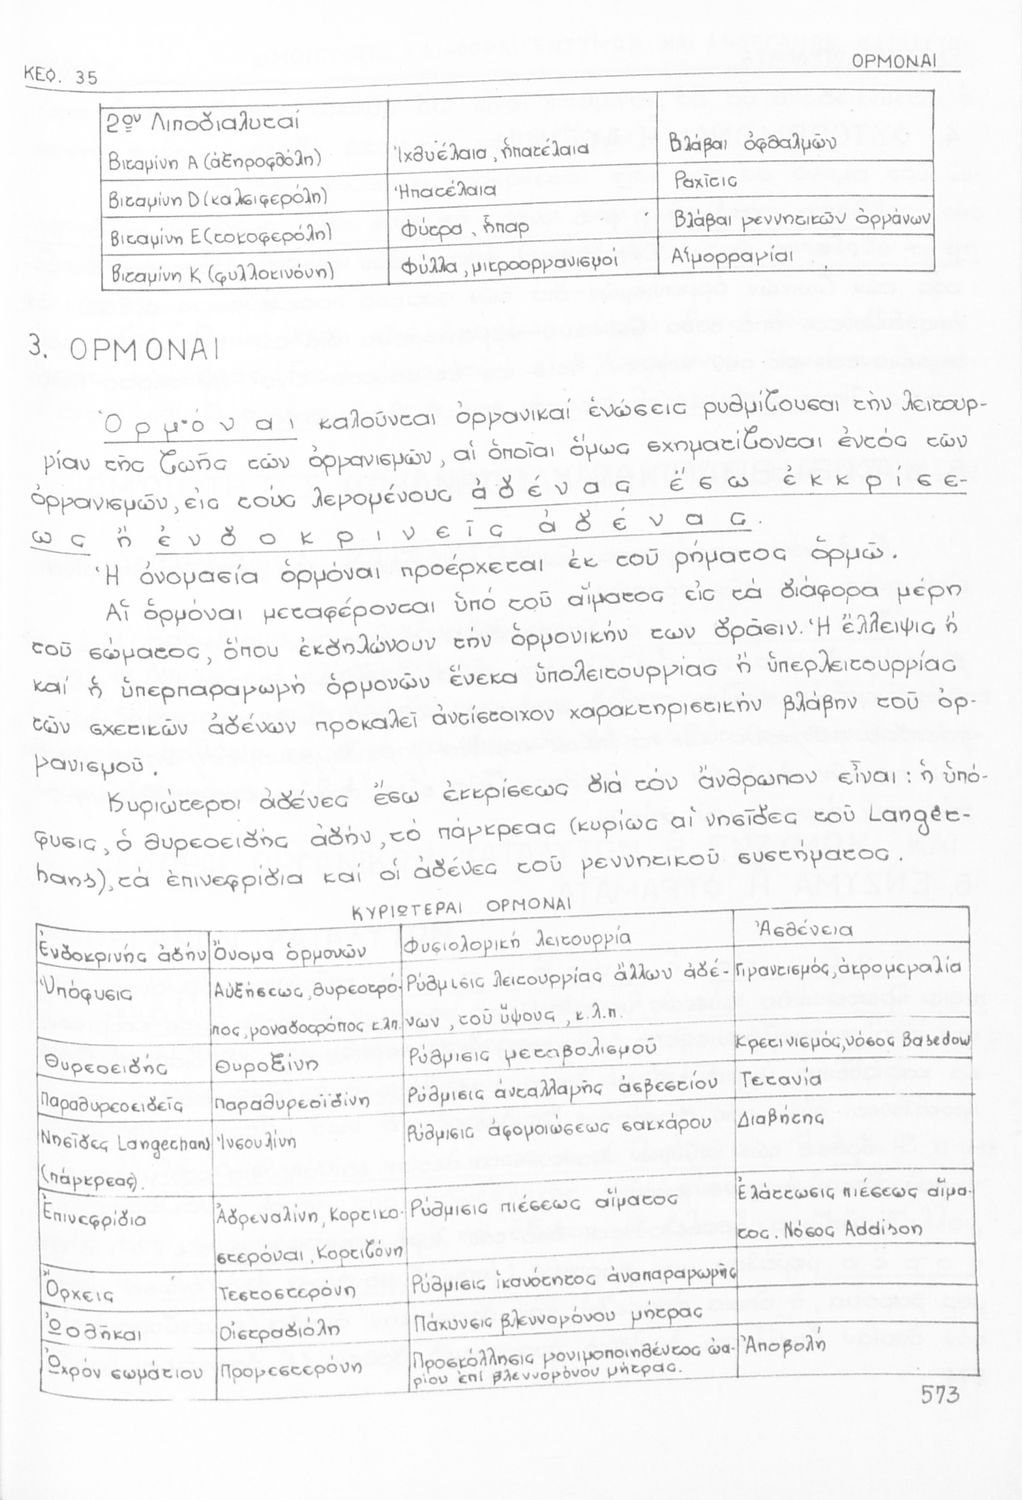 ΚΕΦ. 35
ΟΡΜΟΝΑΙ
2ον Λιποδιαλυταί
Βιταμίνη Α (ἀξηροφθόλη) Ἰχθυέλαια, ἡπατέλαια Βλάβαι ὀφθαλμῶν
Βιταμίνη D (καλσιφερόλη) Ἡπατέλαια Ραχῖτις
Βιταμίνη Ε (τοκοφερόλη) Φύτρα, ἧπαρ Βλάβαι γεννητικῶν ὀργάνων
Βιταμίνη Κ (φυλλοκινόνη) Φύλλα, μικροοργανισμοί Αἱμορραγίαι
3. ΟΡΜΟΝΑΙ
Ὁρμόναι καλοῦνται ὀργανικαί ἑνώσεις ρυθμίζουσαι τήν λειτουρ-
γίαν τῆς ζωῆς τῶν ὀργανισμῶν, αἱ ὁποῖαι ὅμως σχηματίζονται ἐντός τῶν
ὀργανισμῶν, εἰς τούς λεγομένους ἀδένας ἔσω ἐκκρίσε-
ως ἤ ἐνδοκρινεῖς ἀδένας.
Ἡ ὀνομασία ὁρμόναι προέρχεται ἐκ τοῦ ρήματος ὁρμῶ.
Αἱ ὁρμόναι μεταφέρονται ὑπό τοῦ αἵματος εἰς τά διάφορα μέρη
τοῦ σώματος, ὅπου ἐκδηλώνουν τήν ὁρμονικήν των δρᾶσιν. Ἡ ἔλλειψις ἤ
καί ἡ ὑπερπαραγωγή ὁρμονῶν ἕνεκα ὑπολειτουργίας ἤ ὑπερλειτουργίας
τῶν σχετικῶν ἀδένων προκαλεῖ ἀντίστοιχον χαρακτηριστικήν βλάβην τοῦ ὀρ-
γανισμοῦ.
Κυριώτεροι ἀδένες ἔσω ἐκκρίσεως διά τόν ἄνθρωπον εἶναι: ἡ ὑπό-
φυσις, ὁ θυρεοειδής ἀδήν, τό πάγκρεας (κυρίως αἱ νησῖδες τοῦ Langer-
hans), τά ἐπινεφρίδια καί οἱ ἀδένες τοῦ γεννητικοῦ συστήματος.
ΚΥΡΙΩΤΕΡΑΙ ΟΡΜΟΝΑΙ
Ἐνδοκρινής ἀδήν Ὄνομα ὁρμονῶν Φυσιολογική λειτουργία Ἀσθένεια
Ὑπόφυσις Αὐξήσεως, θυρεοτρό- Ρύθμισις λειτουργίας ἄλλων ἀδέ- Γιγαντισμός, ἀκρομεγαλία
πος, γοναδοτρόπος κ.λπ. νων, τοῦ ὕψους, κ.λ.π.
Θυρεοειδής Θυροξίνη Ρύθμισις μεταβολισμοῦ Κρετινισμός, νόσος Basedow
Παραθυρεοειδεῖς Παραθυρεοϊδίνη Ρύθμισις ἀνταλλαγῆς ἀσβεστίου Τετανία
Νησῖδες Langerhans Ἰνσουλίνη Ρύθμισις ἀφομοιώσεως σακχάρου Διαβήτης
(πάγκρεας).
Ἐπινεφρίδια Ἀδρεναλίνη, Κορτικο- Ρύθμισις πιέσεως αἵματος Ἐλάττωσις πιέσεως αἵμα-
στερόναι, Κορτιζόνη τος. Νόσος Addison
Ὄρχεις Τεστοστερόνη Ρύθμισις ἱκανότητος ἀναπαραγωγῆς
Ὠοθῆκαι Οἰστραδιόλη Πάχυνσις βλεννογόνου μήτρας
Ὠχρόν σωμάτιον Προγεστερόνη Προσκόλλησις γονιμοποιηθέντος ὠα- Ἀποβολή
ρίου ἐπί βλεννογόνου μήτρας.
573